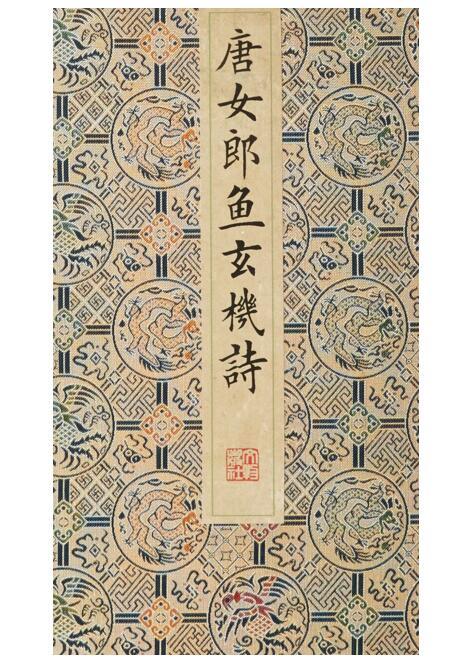 唐女郎鱼玄機詩